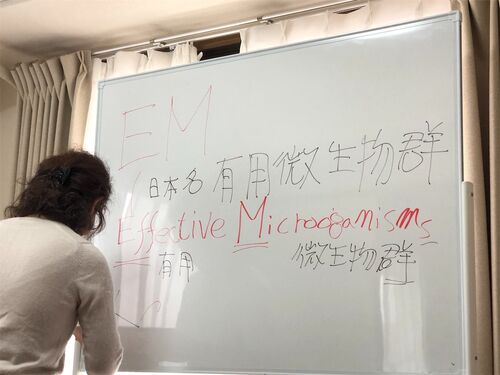 EM
日本名 有用微生物群
Effective Microorganisms
有用 微生物群